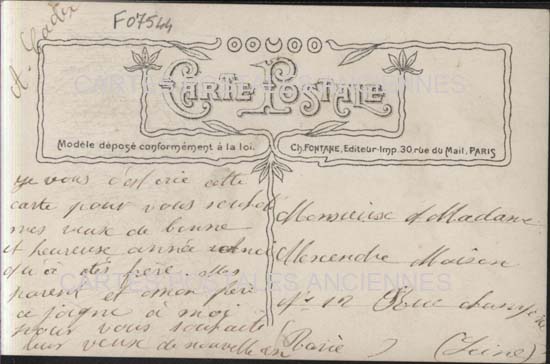 A. Cadix
F07544
CARTE POSTALE
Modèle déposé conformément à la loi.
Ch. FONTANE, Editeur-Imp. 30, rue du Mail, PARIS
CARTES POSTALES ANCIENNES
je vous cette
carte pour vous
mes veux de bonne
et heureuse année
qu'a des frère. Mes
parent et mon frère
a joigne a moi
pour vous souhaité
leur veux de nouvelle an
Monsieur et Madame
Alexandre Maison
N° 12 Rue
Paris
(Seine)
CARTES POSTALES ANCIENNES